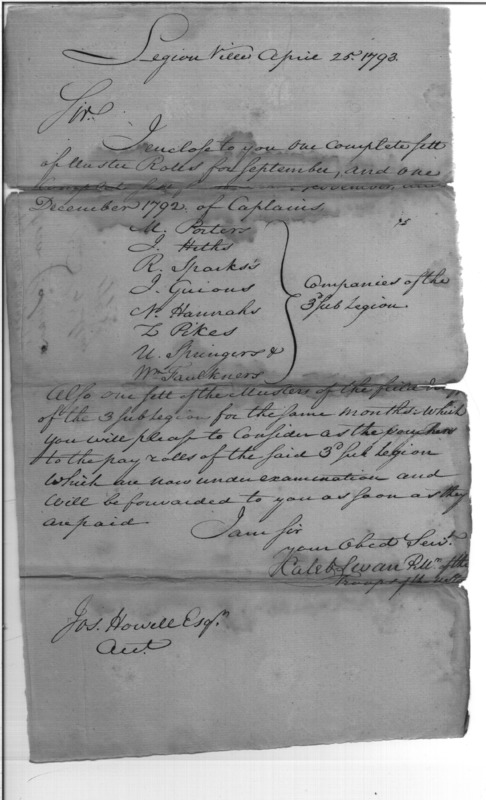 Legion Ville April 25th 1793.
Sir.
I enclose to you one complete sett
of Muster Rolls for September, and one
December 1792. of Captains
M. Porters
J. Heths
R. Sparks's
J. Guions
N. Hannahs
Z Pikes
U. Springers &
Wm. Faulkners
Companies of the
3d Sub Legion.
Also one sett of the Musters of the
of the 3 sub legion for the same months. Which
you will please to Consider as the vouchers
to the pay rolls of the said 3d Sub Legion
Which are now under examination and
Will be forwarded to you as soon as they
are paid.
I am Sir
your Obed Servt.
Caleb Swan P.Mr. of the
Troops of the
Jos. Howell Esqr.
Act.